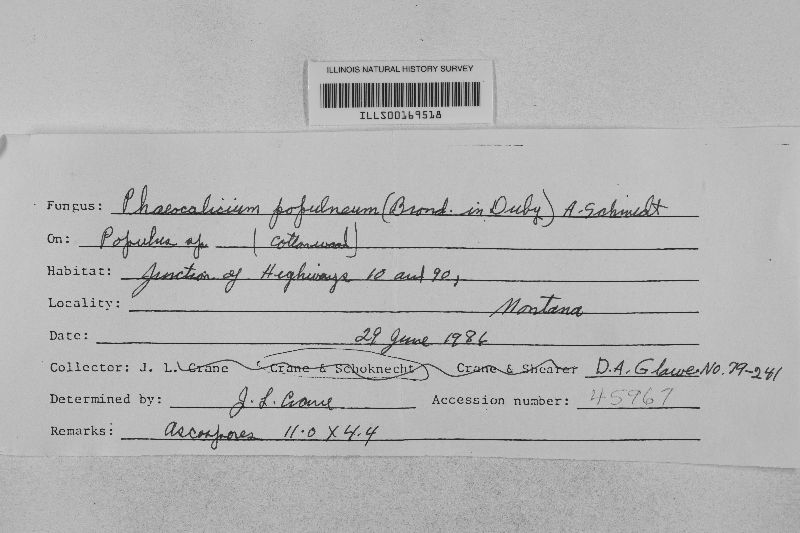 ILLINOIS NATURAL HISTORY SURVEY
ILLS00169518
Fungus: Phaeocalicium populneum (Brond. in Duby) A. Schmidt
On: Populus sp. (cottonwood)
Habitat: Junction of Highways 10 and 90,
Locality: Montana
Date: 29 June 1986
Collector: J. L. Crane Crane & Schoknecht Crane & Shearer D.A. Glawe No. 79-241
Determined by: J. L. Crane Accession number: 45967
Remarks: Ascospores 11.0 X 4.4